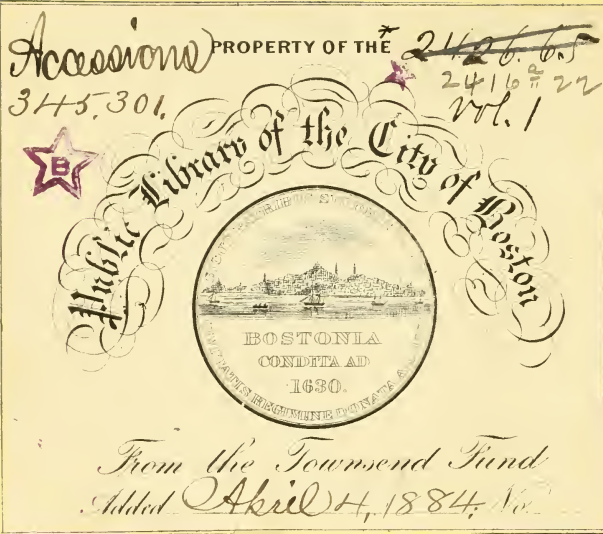 Accessions PROPERTY OF THE * 2426.65
345,301. 2416.22
vol. 1
B
Public Library of the City of Boston
SICUT PATRIBUS SIT DEUS
BOSTONIA
CONDITA AD
1630.
CIVITATIS REGIMINE DONATA A
From the Townsend Fund
Added April 4, 1884. No.